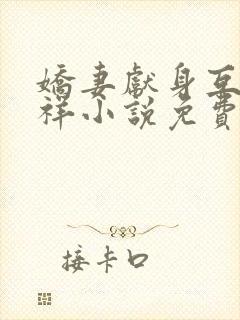 嬌妻獻身互
祥小說免費
接卡口